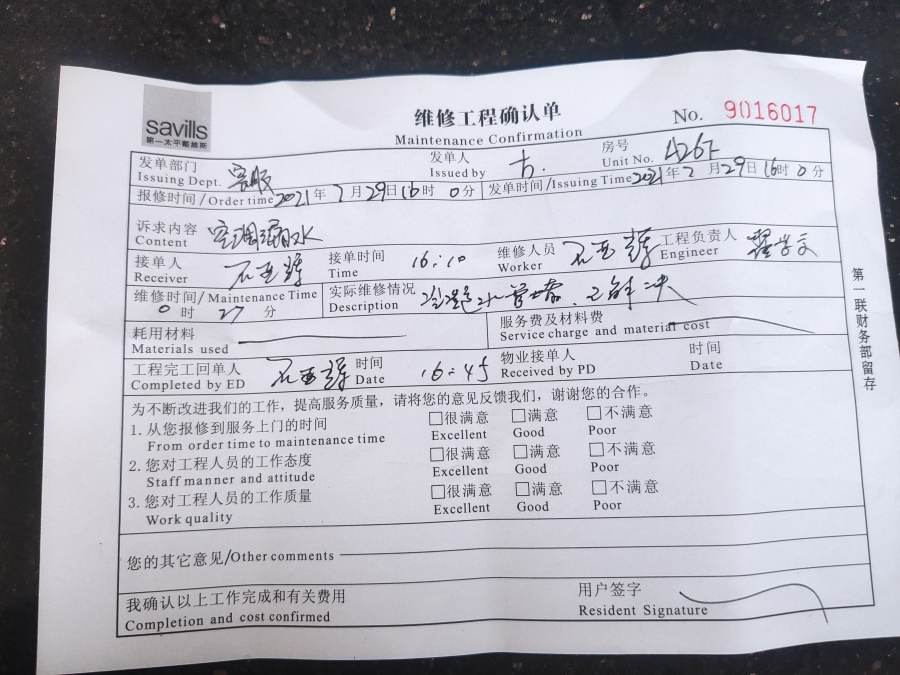 savills
第一太平戴維斯
维修工程确认单
Maintenance Confirmation
No. 9016017
发单部门 客服 发单人 房号 426F
Issuing Dept. Issued by Unit No.
报修时间/Order time 2021年7月29日16时0分 发单时间/Issuing Time 2021年7月29日16时0分
诉求内容 空调漏水
Content
接单人 石亚辉 接单时间 16:10 维修人员 石亚辉 工程负责人
Receiver Time Worker Engineer
维修时间/Maintenance Time 实际维修情况
0时27分 Description 水管堵、已解决
耗用材料 服务费及材料费
Materials used Service charge and material cost
工程完工回单人 石亚辉 时间 16:45 物业接单人 时间
Completed by ED Date Received by PD Date
为不断改进我们的工作，提高服务质量，请将您的意见反馈我们，谢谢您的合作。
1. 从您报修到服务上门的时间 □很满意 □满意 □不满意
From order time to maintenance time Excellent Good Poor
2. 您对工程人员的工作态度 □很满意 □满意 □不满意
Staff manner and attitude Excellent Good Poor
3. 您对工程人员的工作质量 □很满意 □满意 □不满意
Work quality Excellent Good Poor
您的其它意见/Other comments
我确认以上工作完成和有关费用 用户签字
Completion and cost confirmed Resident Signature
第一联财务部留存